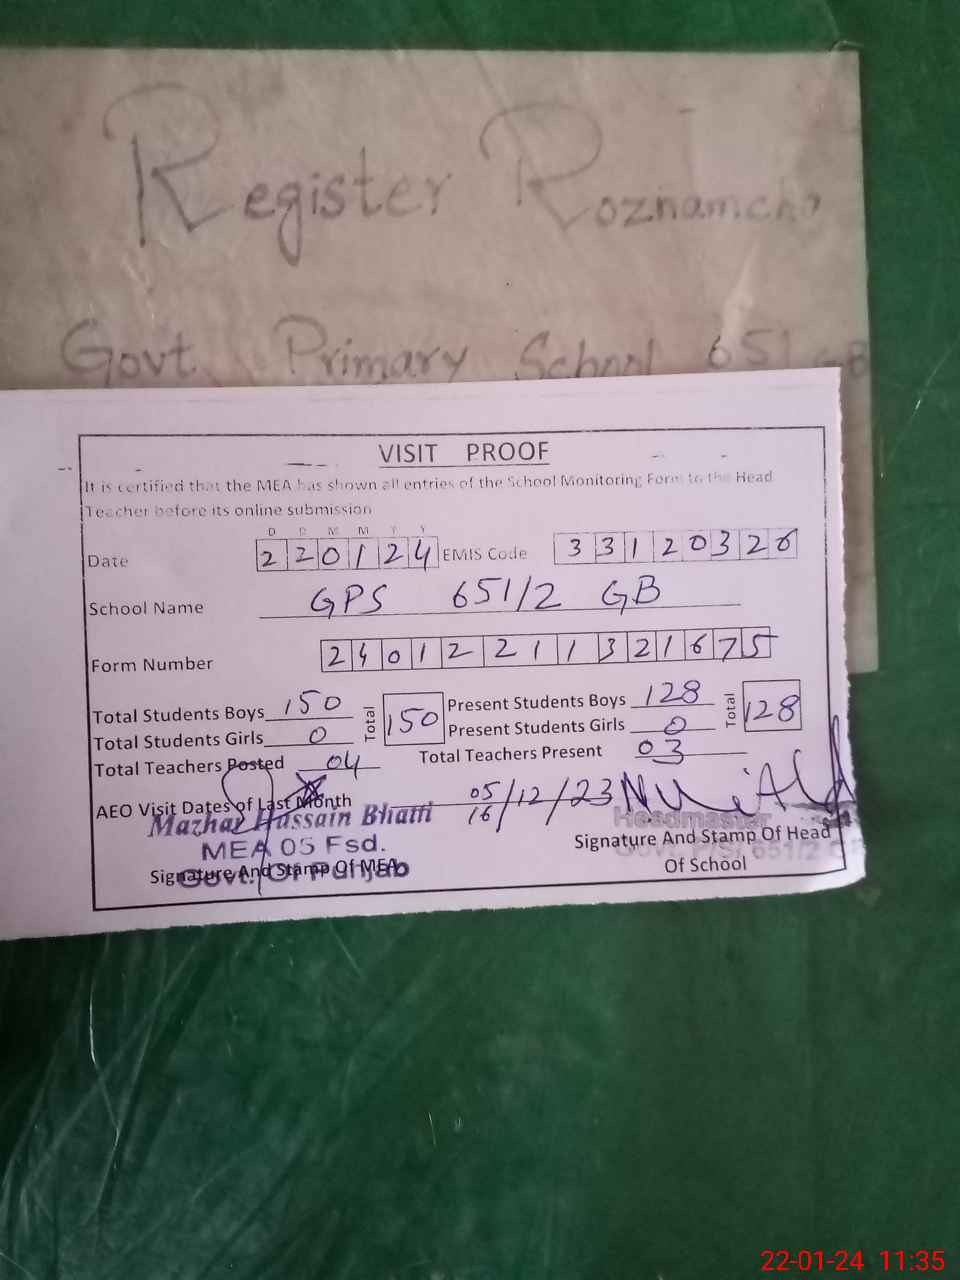 Register Roznamcha
Govt. Primary School 651 GB
VISIT PROOF
It is certified that the MEA has shown all entries of the School Monitoring Form to the Head
Teacher before its online submission
D D M M Y Y
Date 220124 EMIS Code 33120326
School Name GPS 651/2 GB
Form Number 24012211321675
Total Students Boys 150 Total 150 Present Students Boys 128 Total 128
Total Students Girls 0 Present Students Girls 0
Total Teachers Posted 04 Total Teachers Present 03
AEO Visit Dates of Last Month 05/16/12/23
Mazhar Hussain Bhatti
MEA 05 Fsd.
Govt. Of Punjab
Signature And Stamp Of MEA
Headmaster
Signature And Stamp Of Head
Of School
651/2
22-01-24 11:35